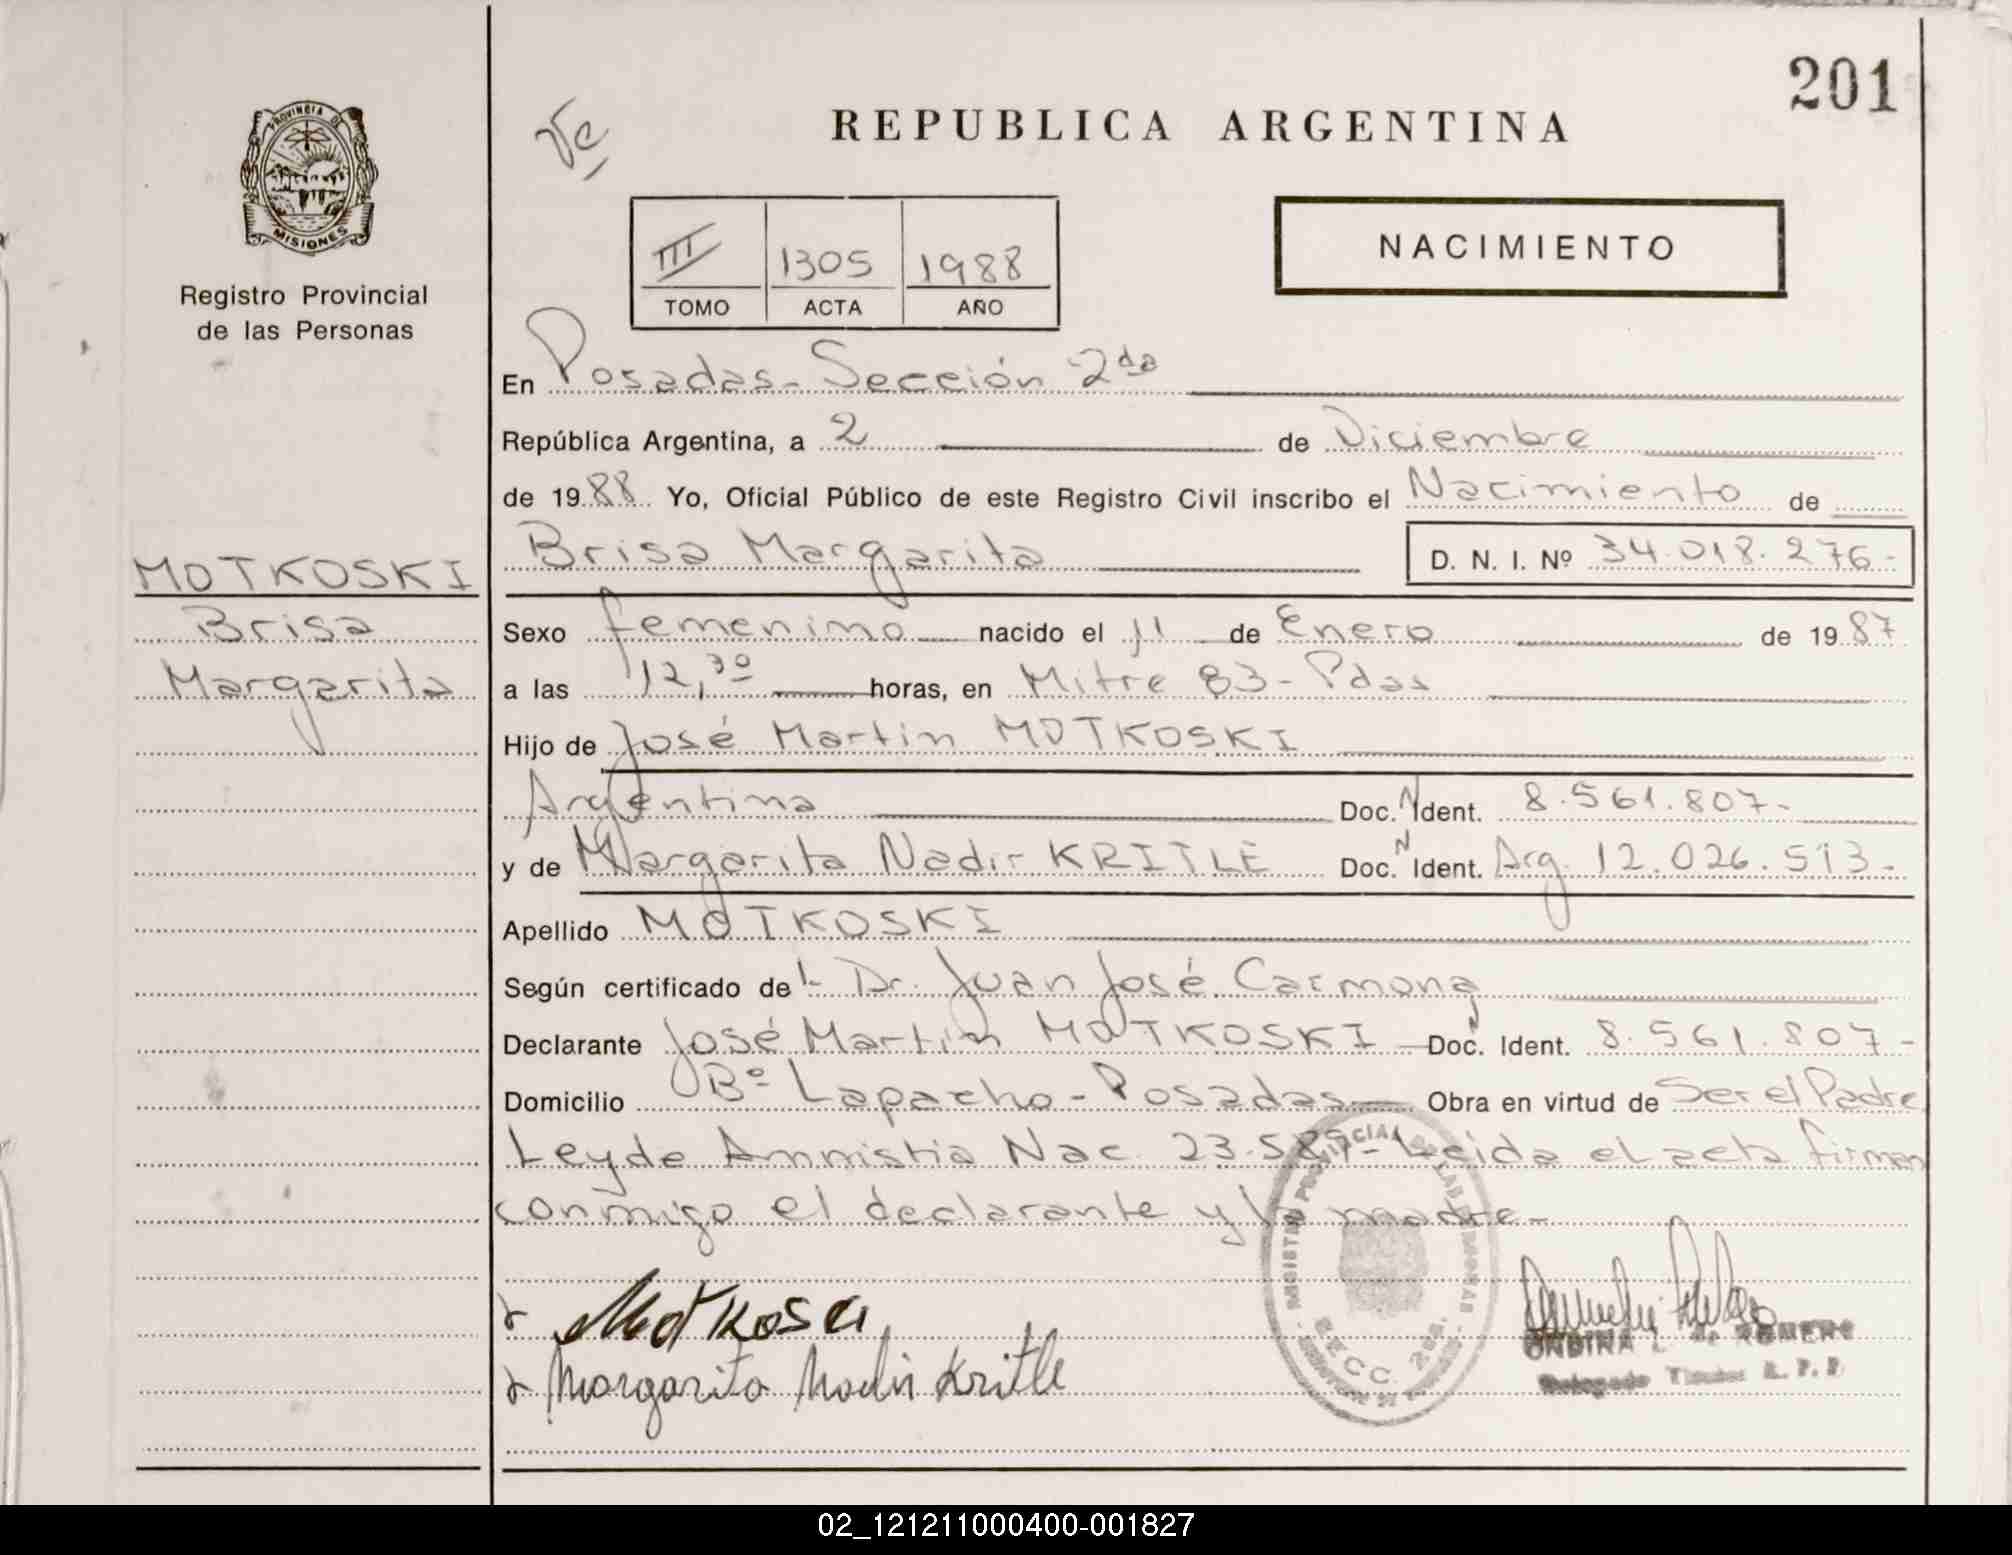 201
REPUBLICA ARGENTINA
PROVINCIA DE
MISIONES
Registro Provincial
de las Personas
NACIMIENTO
III 1305 1988
TOMO ACTA AÑO
En Posadas - Sección 2da
República Argentina, a 2 de Diciembre
de 1988 Yo, Oficial Público de este Registro Civil inscribo el Nacimiento de
MOTKOSKI
Brisa
Margarita
Brisa Margarita D. N. I. Nº 34.018.276-
Sexo femenino nacido el 11 de Enero de 1987
a las 12,30 horas, en Mitre 83 - Pdas
Hijo de José Martin MOTKOSKI
Argentina Doc. N Ident. 8.561.807-
y de Margarita Nadir KRITLE Doc. N Ident. Arg. 12.026.513-
Apellido MOTKOSKI
Según certificado del - Dr. Juan José Carmona
Declarante José Martin MOTKOSKI Doc. Ident. 8.561.807-
Domicilio Bº Lapacho - Posadas Obra en virtud de Ser el Padre
Ley de Amnistia Nac. 23.587- Leida el acta firman
conmigo el declarante y la madre-
Motkoski
Margarita Nadir Kritle
SECC. 2da.
ONDINA ROMERO
Delegado Titular R. P. P
02_121211000400-001827